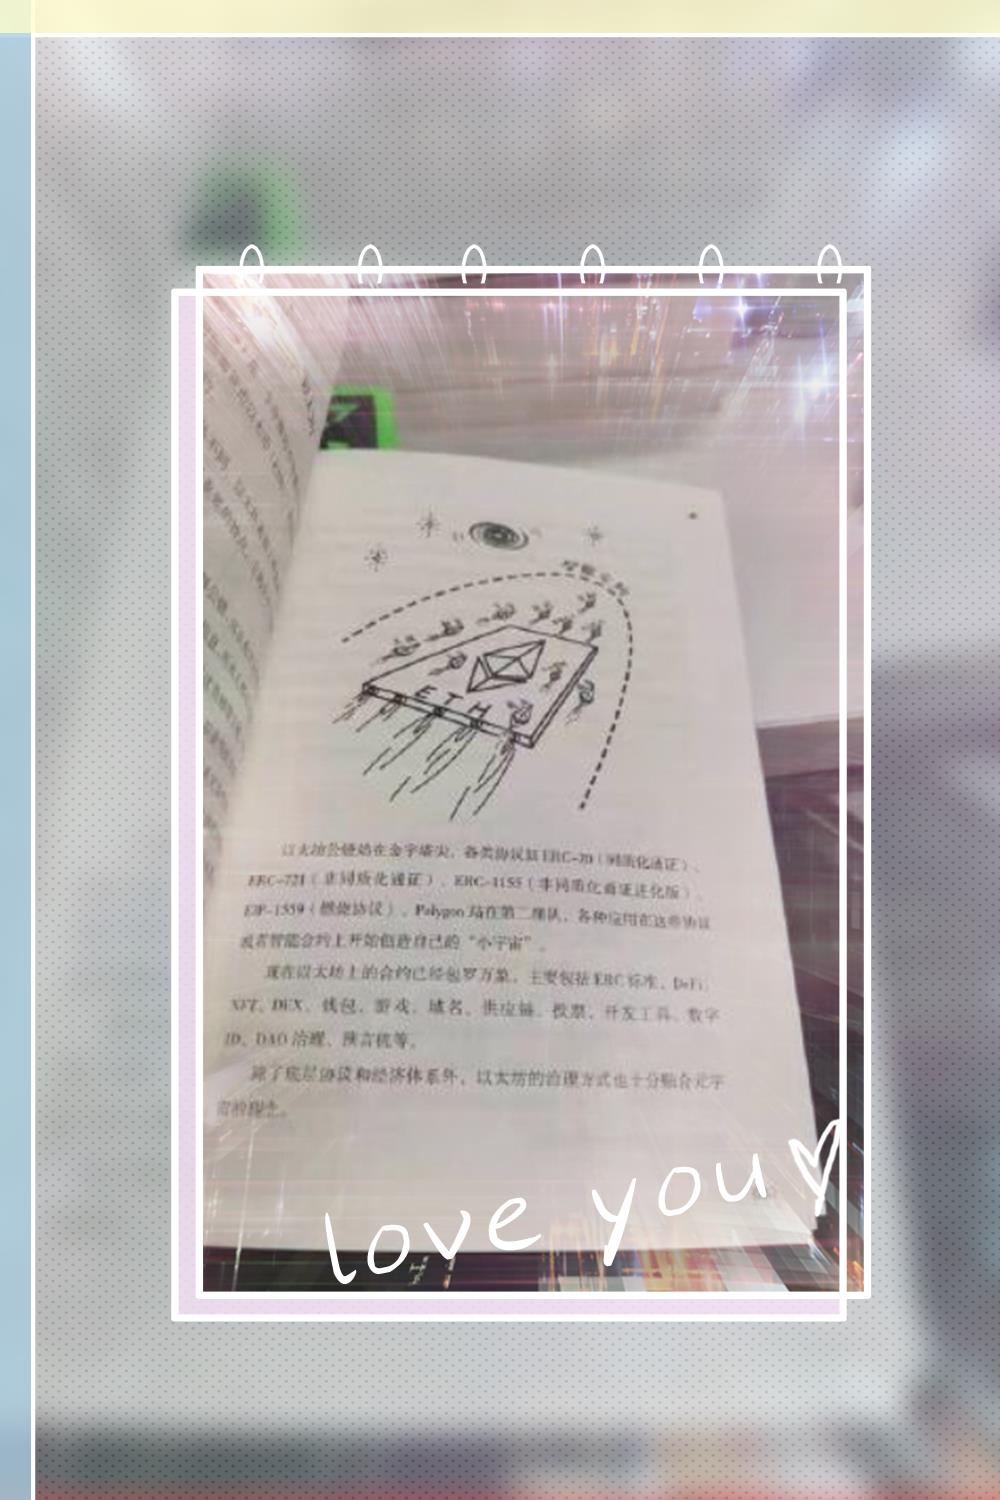 ETH
以太坊公链站在金字塔尖，各类协议如 ERC-20（同质化通证）、
ERC-721（非同质化通证）、ERC-1155（非同质化通证进化版）、
EIP-1559（燃烧协议）、Polygon 站在第二梯队，各种应用在这些协议
或者智能合约上开始创造自己的“小宇宙”。
现在以太坊上的合约已经包罗万象，主要包括 ERC 标准、DeFi、
NFT、DEX、钱包、游戏、域名、供应链、投票、开发工具、数字
ID、DAO 治理、预言机等。
除了底层协议和经济体系外，以太坊的治理方式也十分贴合元宇
宙的理念。
love you